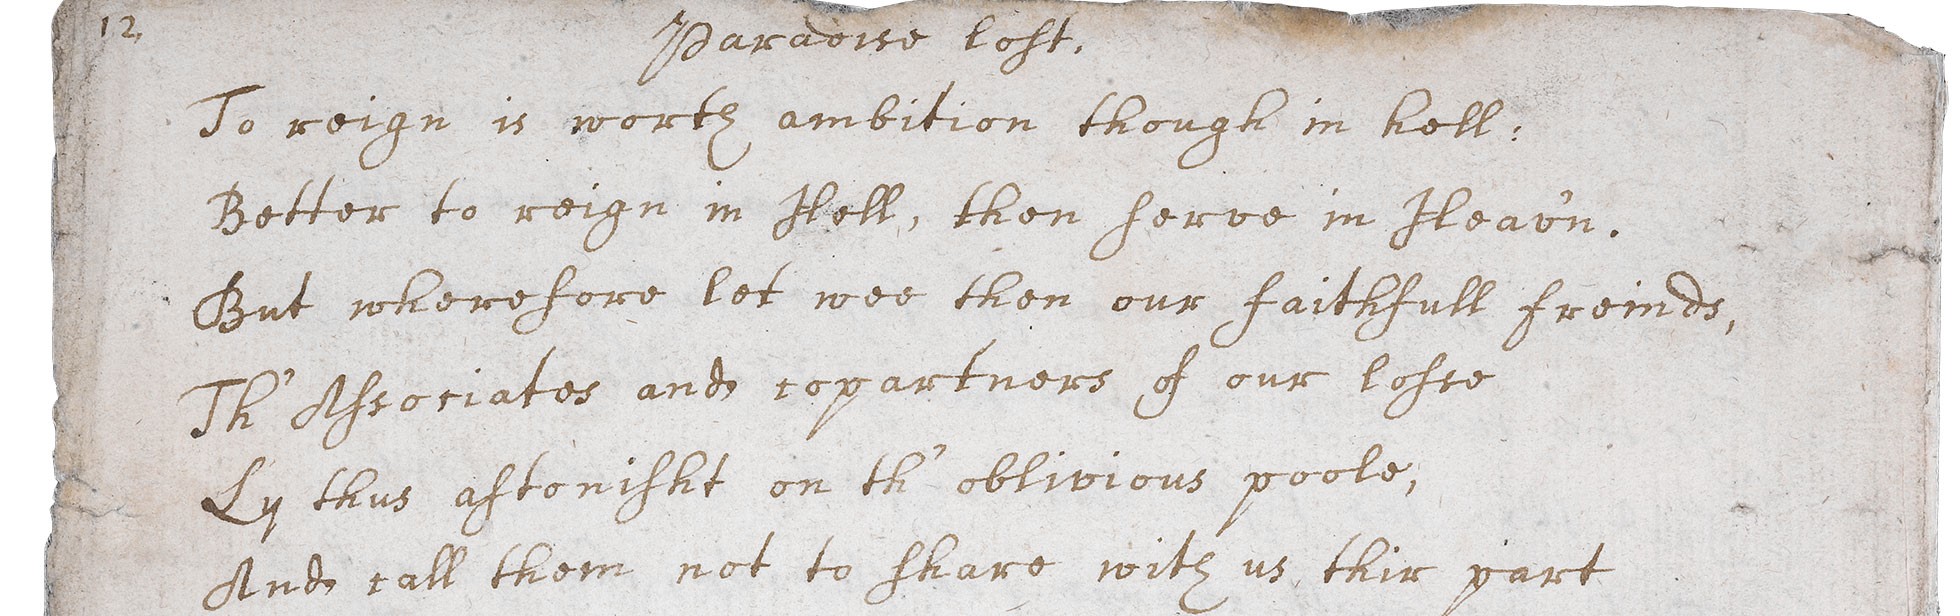 12,
Paradise lost.
To reign is worth ambition though in hell:
Better to reign in Hell, then serve in Heav'n.
But wherefore let wee then our faithfull freinds,
Th' Associates and copartners of our losse
Ly thus astonisht on th' oblivious poole,
And call them not to share with us thir part